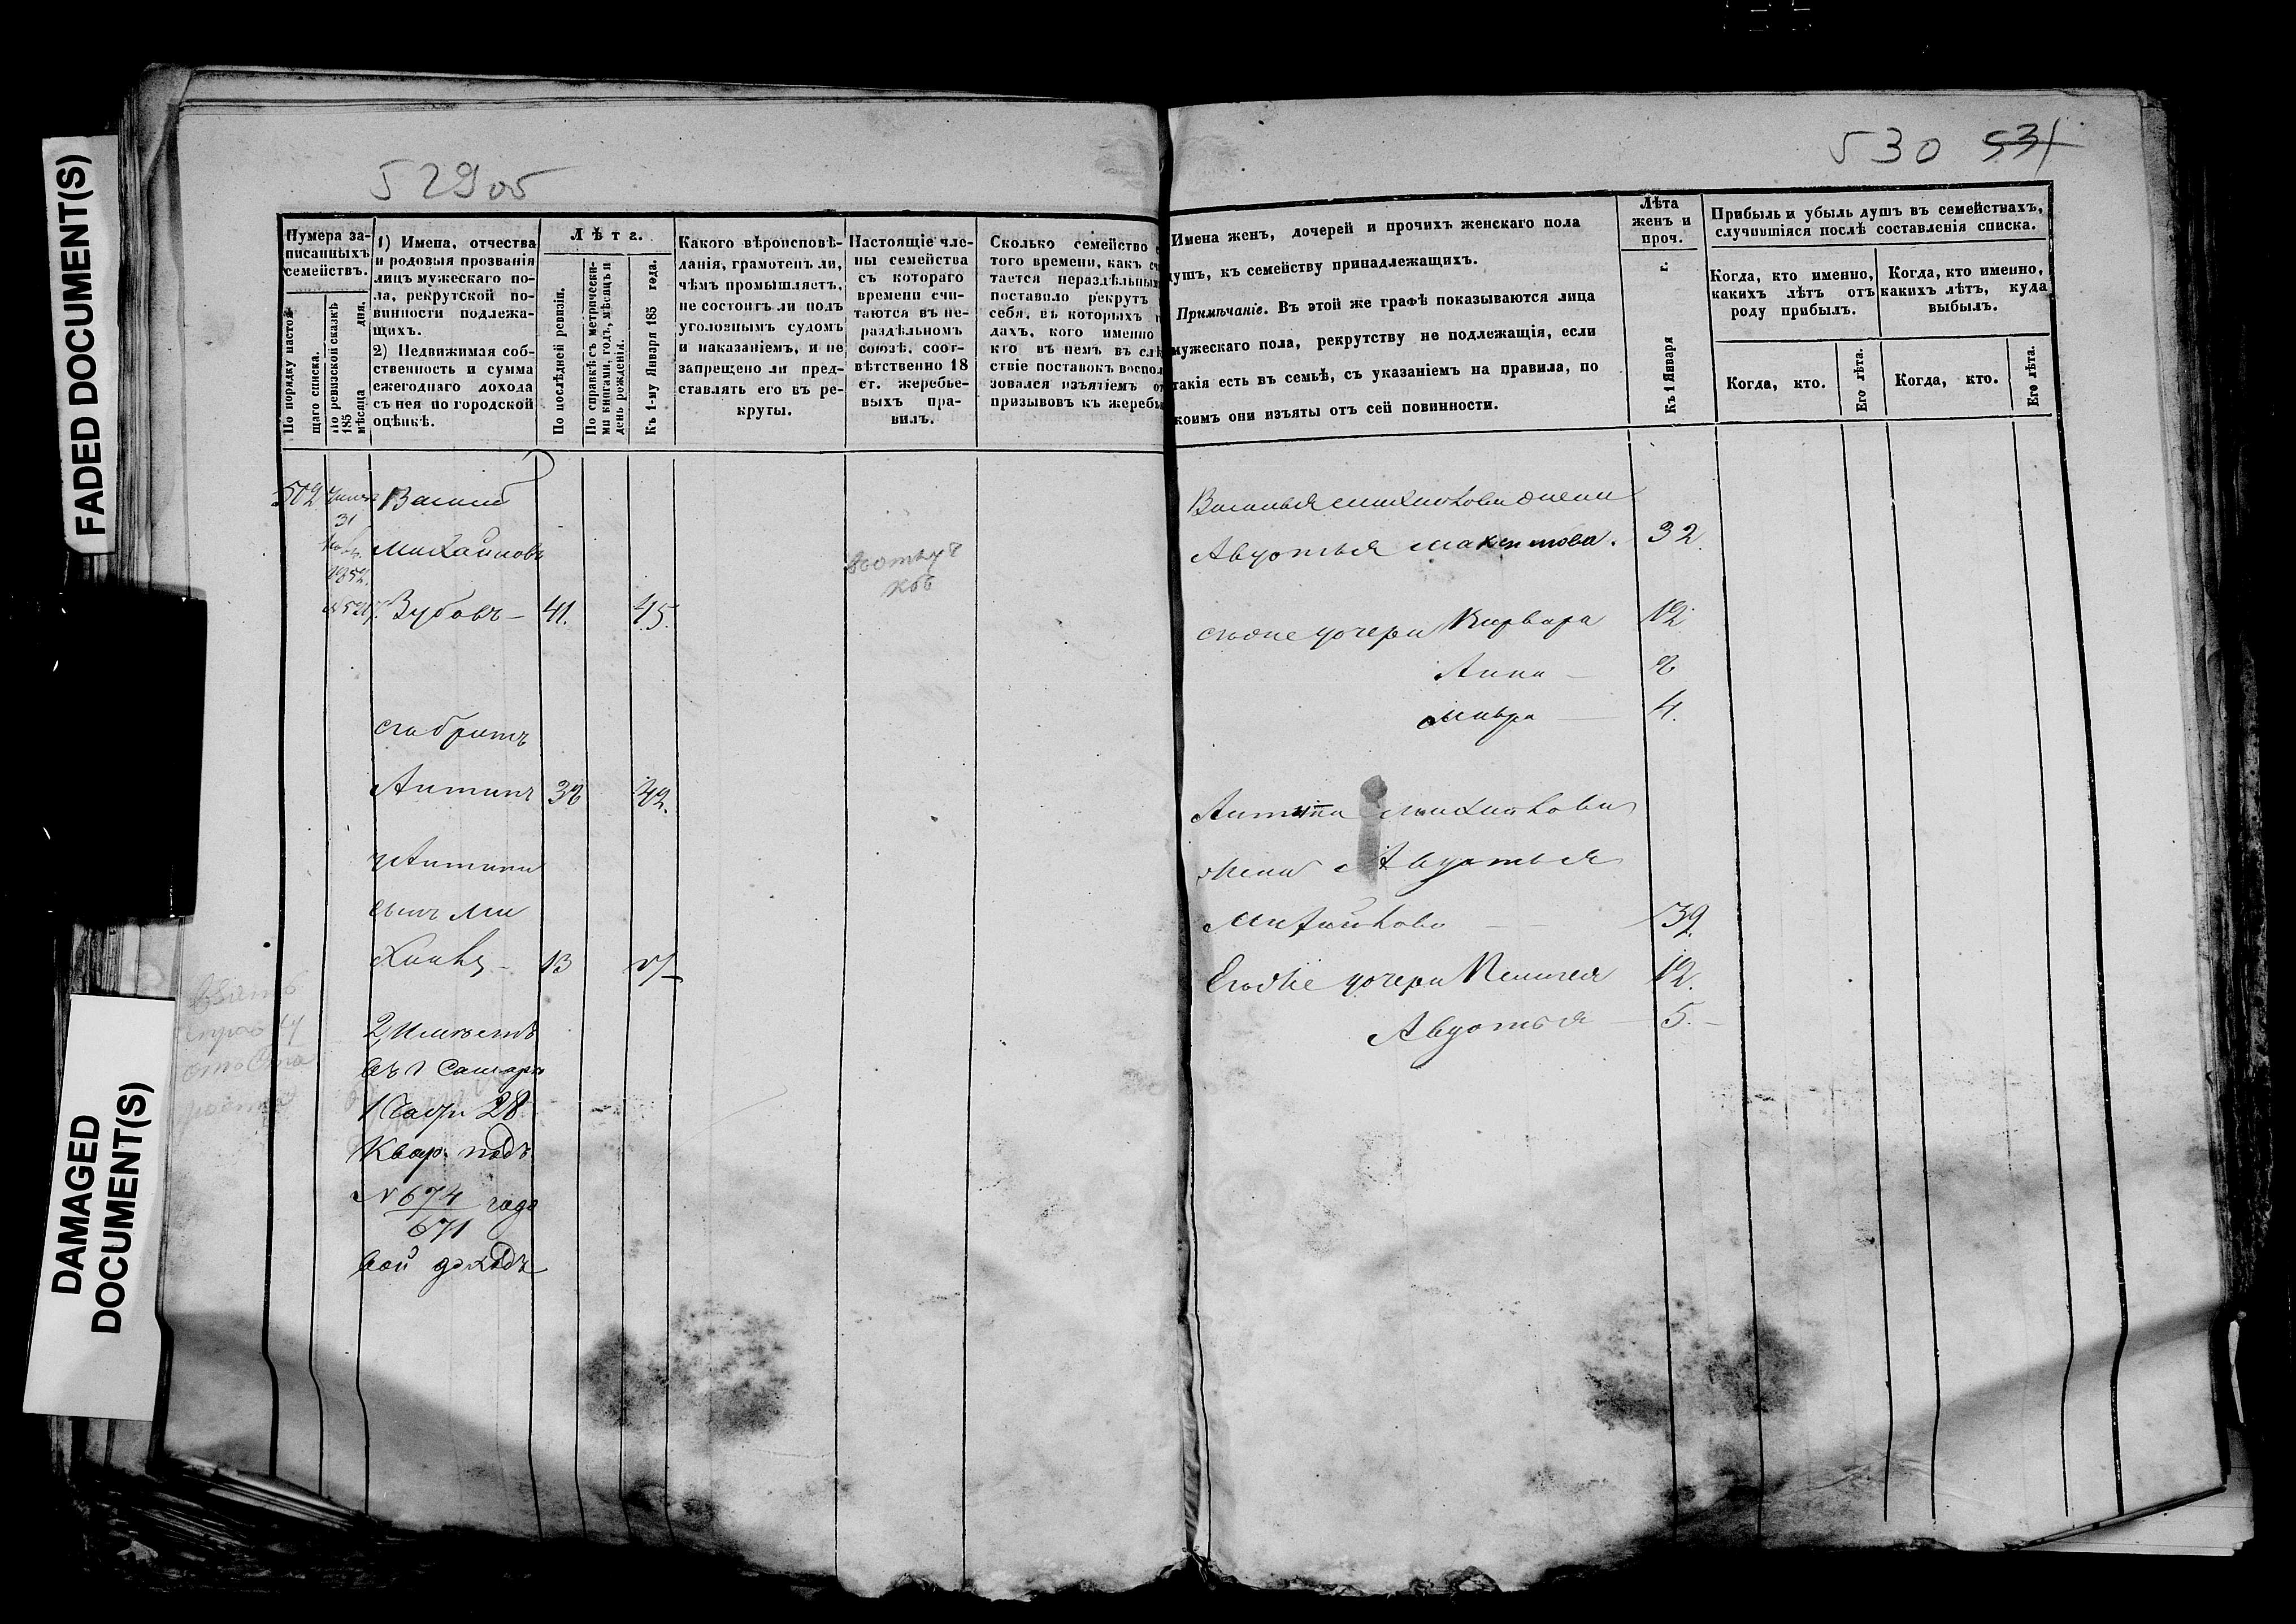 FADED DOCUMENT(S)
DAMAGED
DOCUMENT(S)
529 об
Нумера за-
писанныхъ
семействъ.
По порядку настоя-
щаго списка.
По ревизской сказкѣ
185 дня.
мѣсяца
1) Имена, отчества
и родовыя прозванія
лицъ мужескаго по-
ла, рекрутской по-
винности подлежа-
щихъ.
2) Недвижимая соб-
ственность и сумма
ежегоднаго дохода
съ нея по городской
оцѣнкѣ.
Лѣта.
По послѣдней ревизіи.
По справкѣ съ метрически-
ми книгами, годъ, мѣсяцъ и
день рожденія.
Къ 1-му Января 185 года.
Какого вѣроисповѣ-
данія, грамотенъ ли,
чѣмъ промышляетъ,
не состоитъ ли подъ
уголовнымъ судомъ
и наказаніемъ, и не
запрещено ли пред-
ставлять его въ ре-
круты.
Настоящіе чле-
ны семейства
съ котораго
времени счи-
таются въ не-
раздѣльномъ
союзѣ, соот-
вѣтственно 18
ст. жеребье-
выхъ пра-
вилъ.
Сколько семейство с
того времени, какъ сч
тается нераздѣльнымъ
поставило рекрутъ
себя, въ которыхъ г
дахъ, кого именно
кто въ немъ въ слѣ
ствіе поставокъ воспол
зовался изъятіемъ от
призывовъ къ жеребь
502
31
1852.
Василій
Михайловъ
Зубовъ — 41. 45.
его братъ
Антипъ 38 42.
у Антипа
сынъ Ми
хаилъ — 13
2) Имѣетъ
въ г Самарѣ
1 Части 28
Квар. подъ
№ 674 годо
671
вой доходъ
530 531
Имена женъ, дочерей и прочихъ женскаго пола
душъ, къ семейству принадлежащихъ.
Примѣчаніе. Въ этой же графѣ показываются лица
мужескаго пола, рекрутству не подлежащія, если
такія есть въ семьѣ, съ указаніемъ на правила, по
коимъ они изъяты отъ сей повинности.
Лѣта
женъ и
проч.
Къ 1 Января г.
Прибыль и убыль душъ въ семействахъ,
случившіяся послѣ составленія списка.
Когда, кто именно,
какихъ лѣтъ отъ
роду прибылъ.
Когда, кто именно,
какихъ лѣтъ, куда
выбылъ.
Когда, кто.
Его лѣта.
Когда, кто.
Его лѣта.
Василья Михайлова жена
Авдотья Максимова. 32.
его же дочери Варвара 12
Анна — 8
Мавра — 4.
Антипа Михайлова
жена Авдотья
Михайлова — — 39.
Его же дочери Пелагея 12.
Авдотья — 5. —